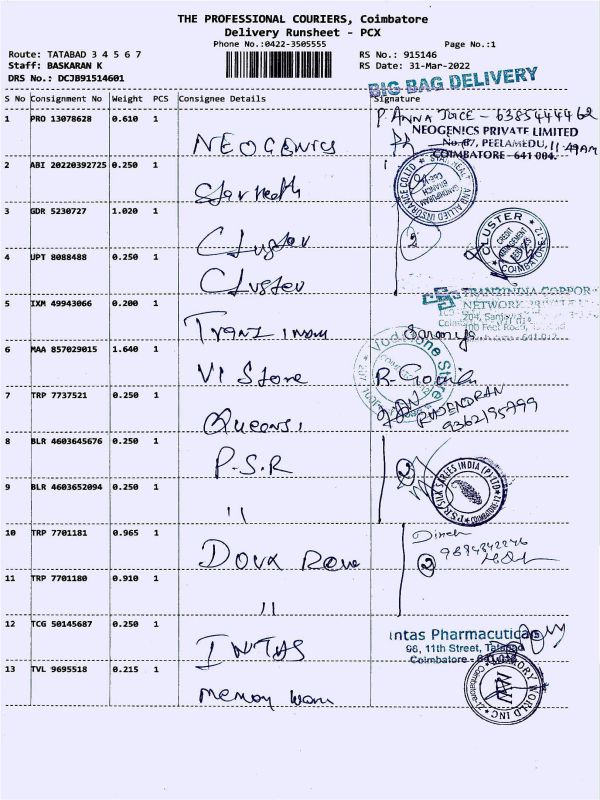 THE PROFESSIONAL COURIERS, Coimbatore
Delivery Runsheet - PCX
Phone No.:0422-3505555
Page No.:1
Route: TATABAD 3 4 5 6 7
RS No.: 915146
Staff: BASKARAN K
RS Date: 31-Mar-2022
DRS No.: DCJB91514601
BIG BAG DELIVERY
S No Consignment No Weight PCS Consignee Details Signature
1 PRO 13078628 0.610 1 NEOGENICS
P. ANNA JOICE - 6385444462
NEOGENICS PRIVATE LIMITED
PEELAMEDU, 11:49AM
COIMBATORE - 641 004.
2 ABI 20220392725 0.250 1 Star Health
STAR HEALTH AND ALLIED INSURANCE CO LTD
BRANCH
3 GDR 5230727 1.020 1 Cluster
2
CLUSTER
CREDIT MANAGEMENT SERVICES
COIMBATORE-12
4 UPT 8088488 0.250 1 Cluster
5 IXM 49943066 0.200 1
TRANZINDIA CORPOR
NETWORK PRIVATE L
204,
100 Feet Road,
Saranya
6 MAA 857029015 1.640 1 VI Store
Vodafone Store
7 TRP 7737521 0.250 1
RAJENDRAN
8 BLR 4603645676 0.250 1 P.S.R
2
P.S.R SILK SAREES INDIA (P) LTD
COIMBATORE-12
9 BLR 4603652094 0.250 1 11
10 TRP 7701181 0.965 1
2
11 TRP 7701180 0.910 1 11
12 TCG 50145687 0.250 1 INTAS
Intas Pharmaceuticals
96, 11th Street,
Coimbatore - 641 012
13 TVL 9695518 0.215 1
MEMORY WORLD INC
Coimbatore-12